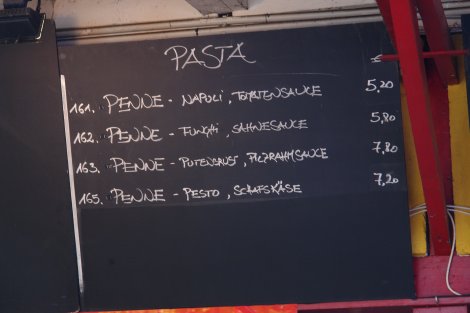 PASTA
€
161. PENNE - NAPOLI, TOMATENSAUCE 5,20
162. PENNE - FUNGHI, SAHNESAUCE 5,80
163. PENNE - PUTENBRUST, PILZRAHMSAUCE 7,80
165. PENNE - PESTO, SCHAFSKÄSE 7,20